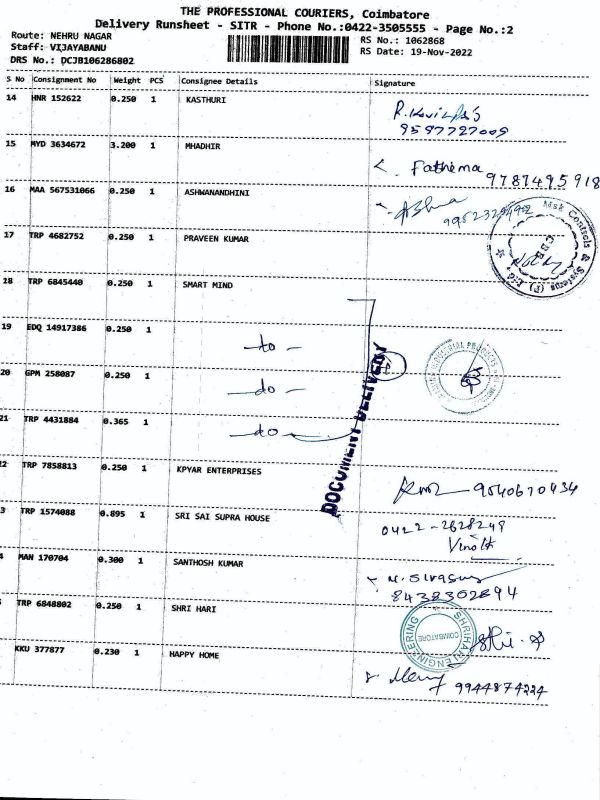 THE PROFESSIONAL COURIERS, Coimbatore
Delivery Runsheet - SITR - Phone No.:0422-3505555 - Page No.:2
Route: NEHRU NAGAR
RS No.: 1062868
Staff: VIJAYABANU
RS Date: 19-Nov-2022
DRS No.: DCJB106286802
S No Consignment No Weight PCS Consignee Details Signature
14 HNR 152622 0.250 1 KASTHURI
9597727009
15 MYD 3634672 3.200 1 MHADHIR
Fathima 9787495918
16 MAA 567531066 0.250 1 ASHWANANDHINI
Msk Controls & Systems (P) Ltd.
17 TRP 4682752 0.250 1 PRAVEEN KUMAR
28 TRP 6845440 0.250 1 SMART MIND
19 EDQ 14917386 0.250 1
- to -
20 GPM 258087 0.250 1
- do -
21 TRP 4431884 0.365 1
- do -
DOCUMENT DELIVERY
2 TRP 7858813 0.250 1 KPYAR ENTERPRISES
9540670434
3 TRP 1574088 0.895 1 SRI SAI SUPRA HOUSE
0422-2628249
Vinoth
4 MAN 170704 0.300 1 SANTHOSH KUMAR
8438302894
TRP 6848802 0.250 1 SHRI HARI
SHRIHARI ENGINEERING
COIMBATORE
KKU 377877 0.230 1 HAPPY HOME
9944874224